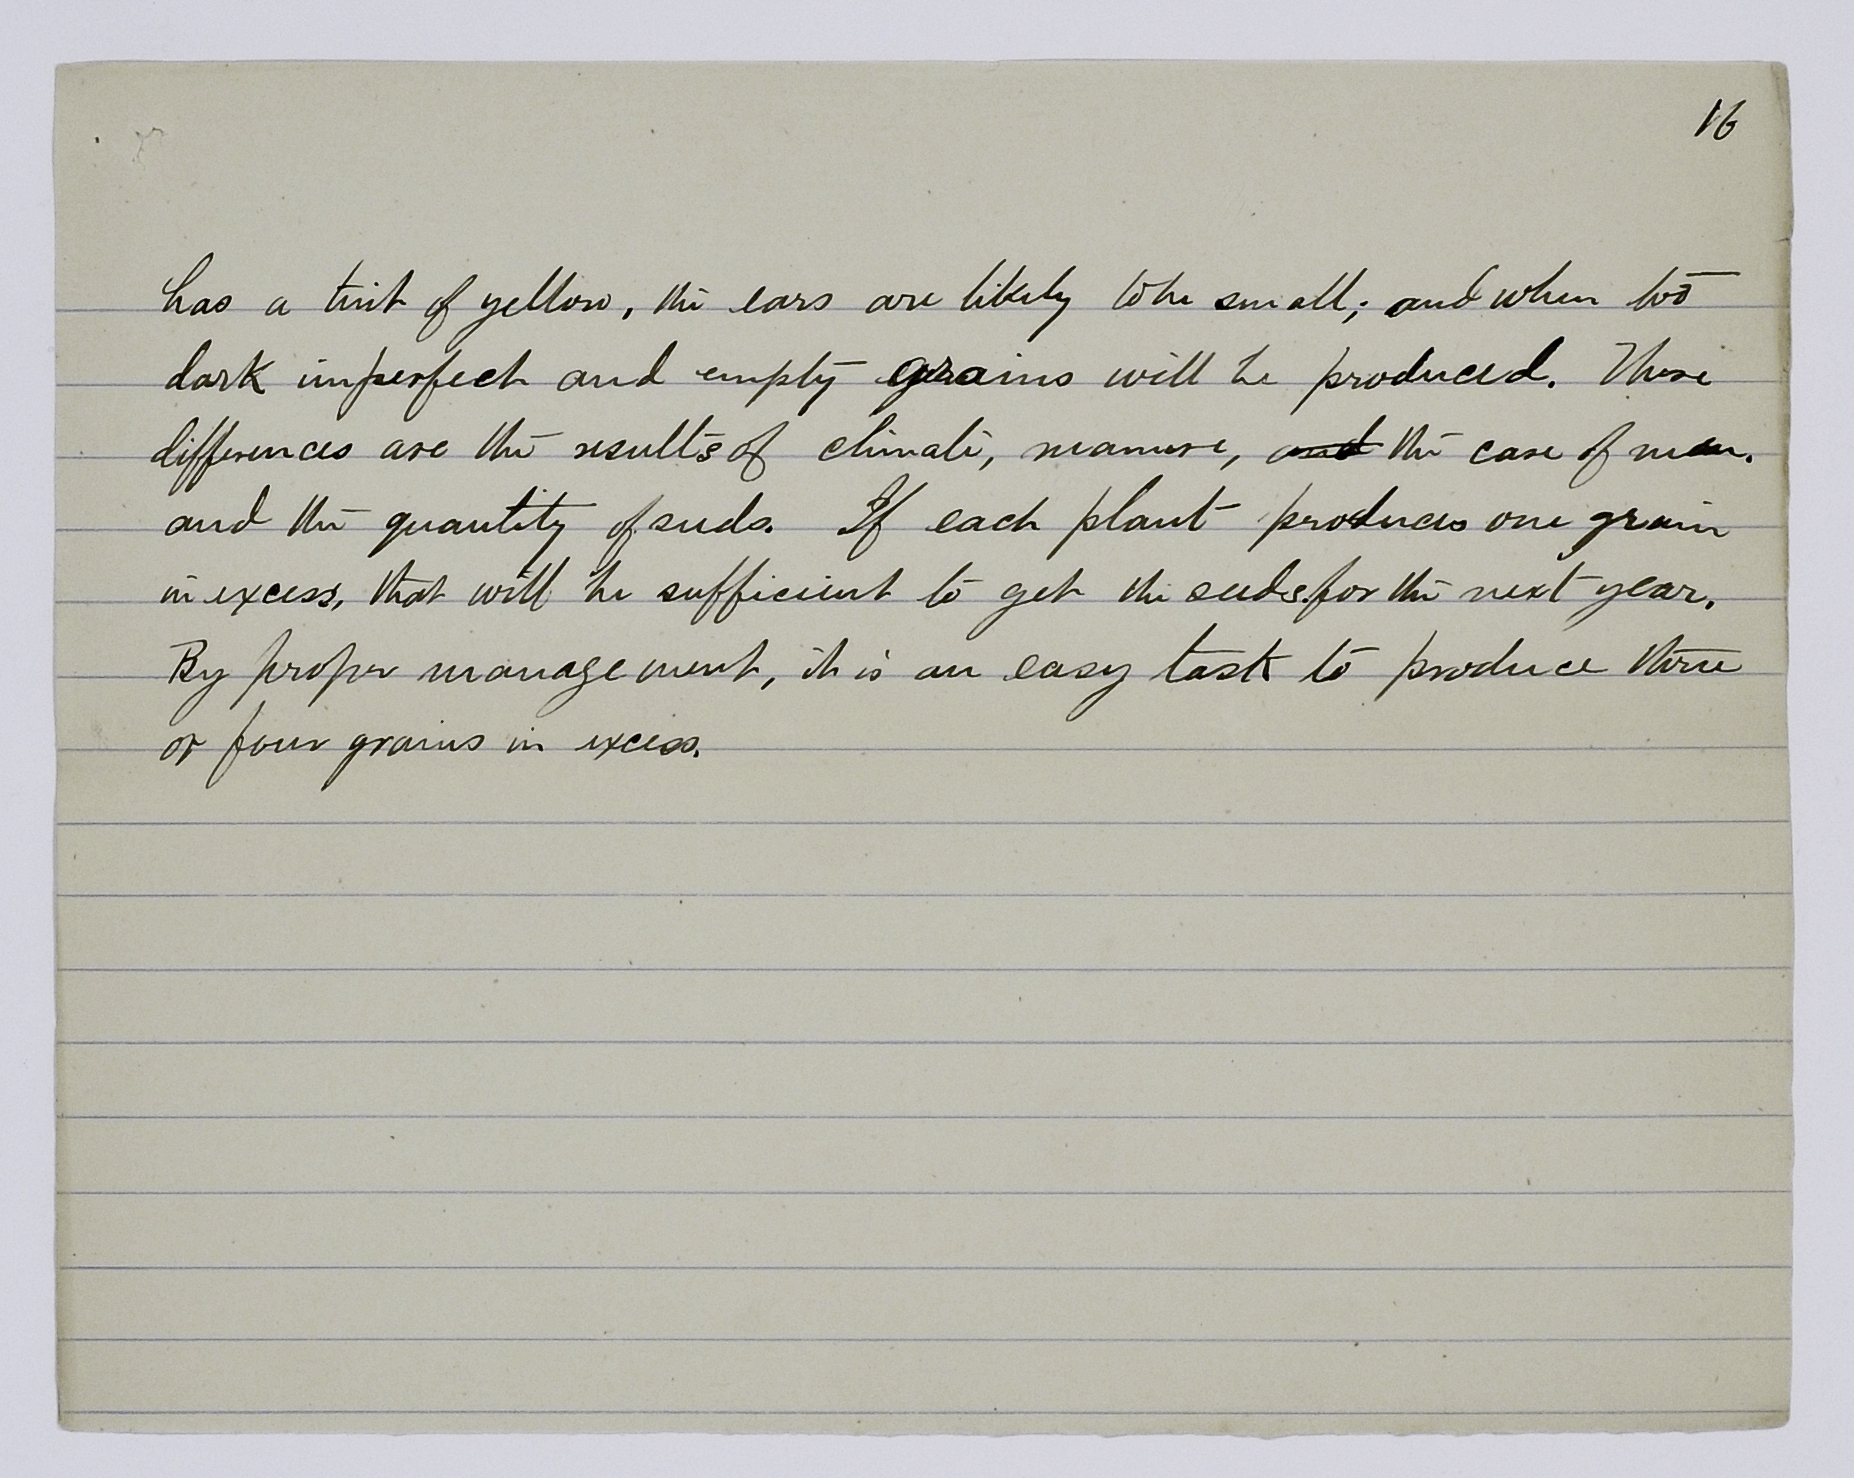 16
has a tint of yellow, the ears are likely to be small; and when too
dark imperfect and empty grains will be produced. These
differences are the results of climate, manure, and the care of men.
and the quantity of seeds. If each plant produces one grain
in excess, that will be sufficient to get the seeds for the next year.
By proper management, it is an easy task to produce three
or four grains in excess.